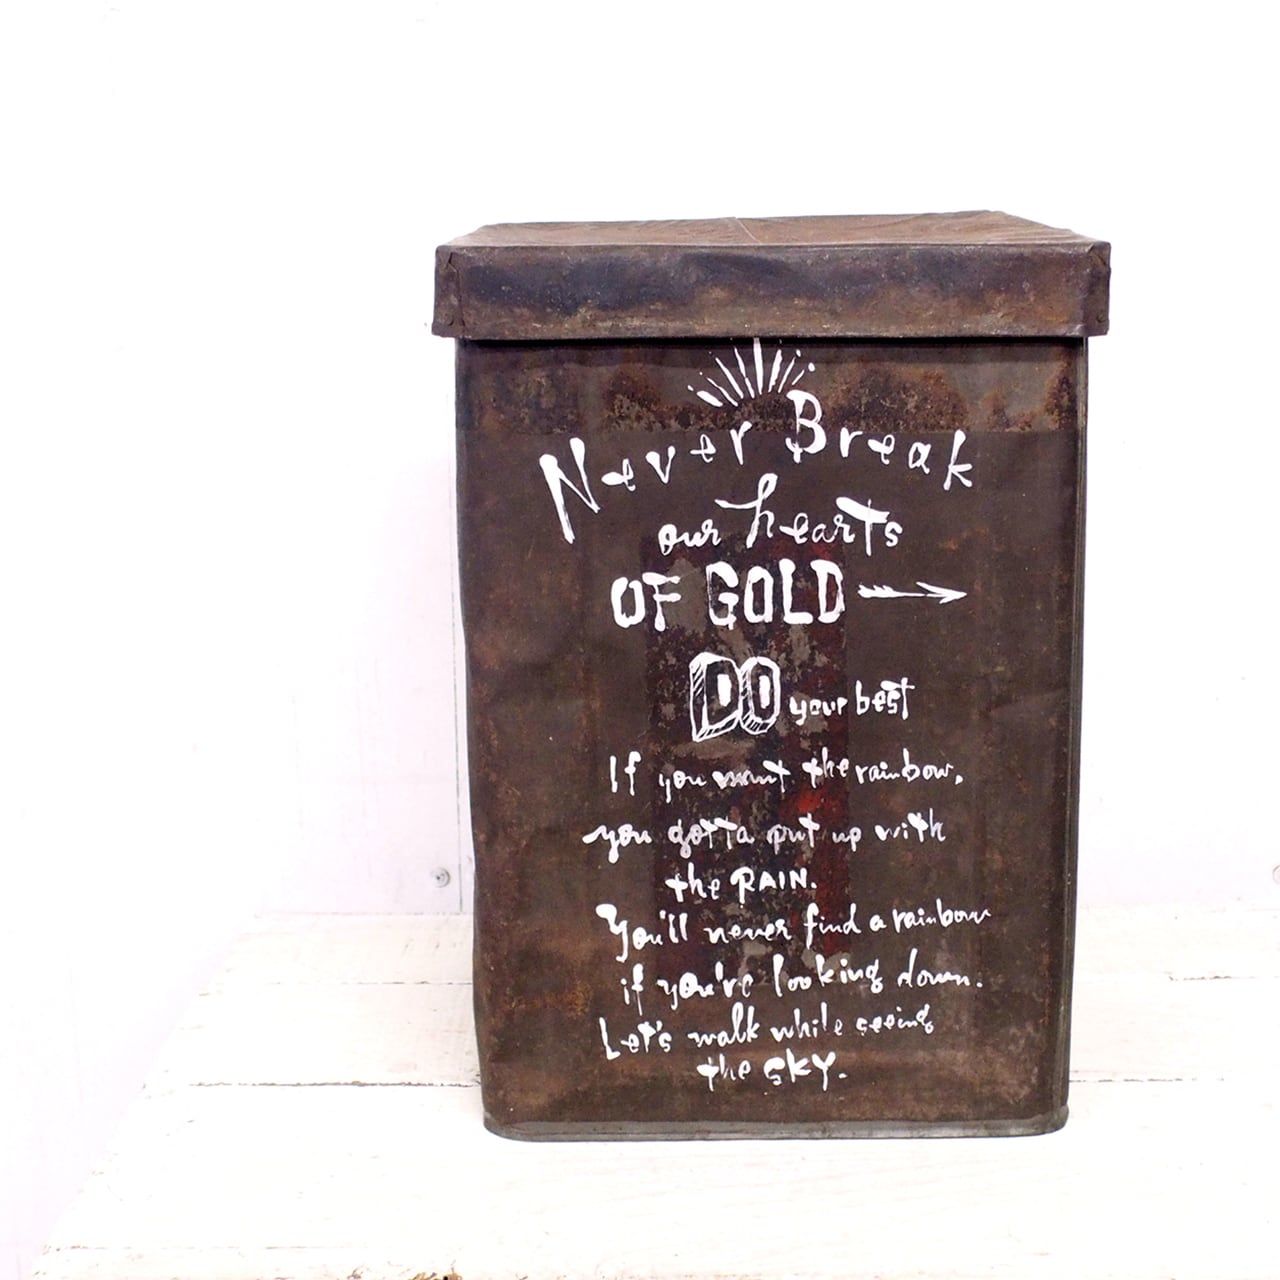 Never Break
our hearts
OF GOLD
DO your best
If you want the rainbow,
you gotta put up with
the RAIN.
You'll never find a rainbow
if you're looking down.
Let's walk while seeing
the SKY.